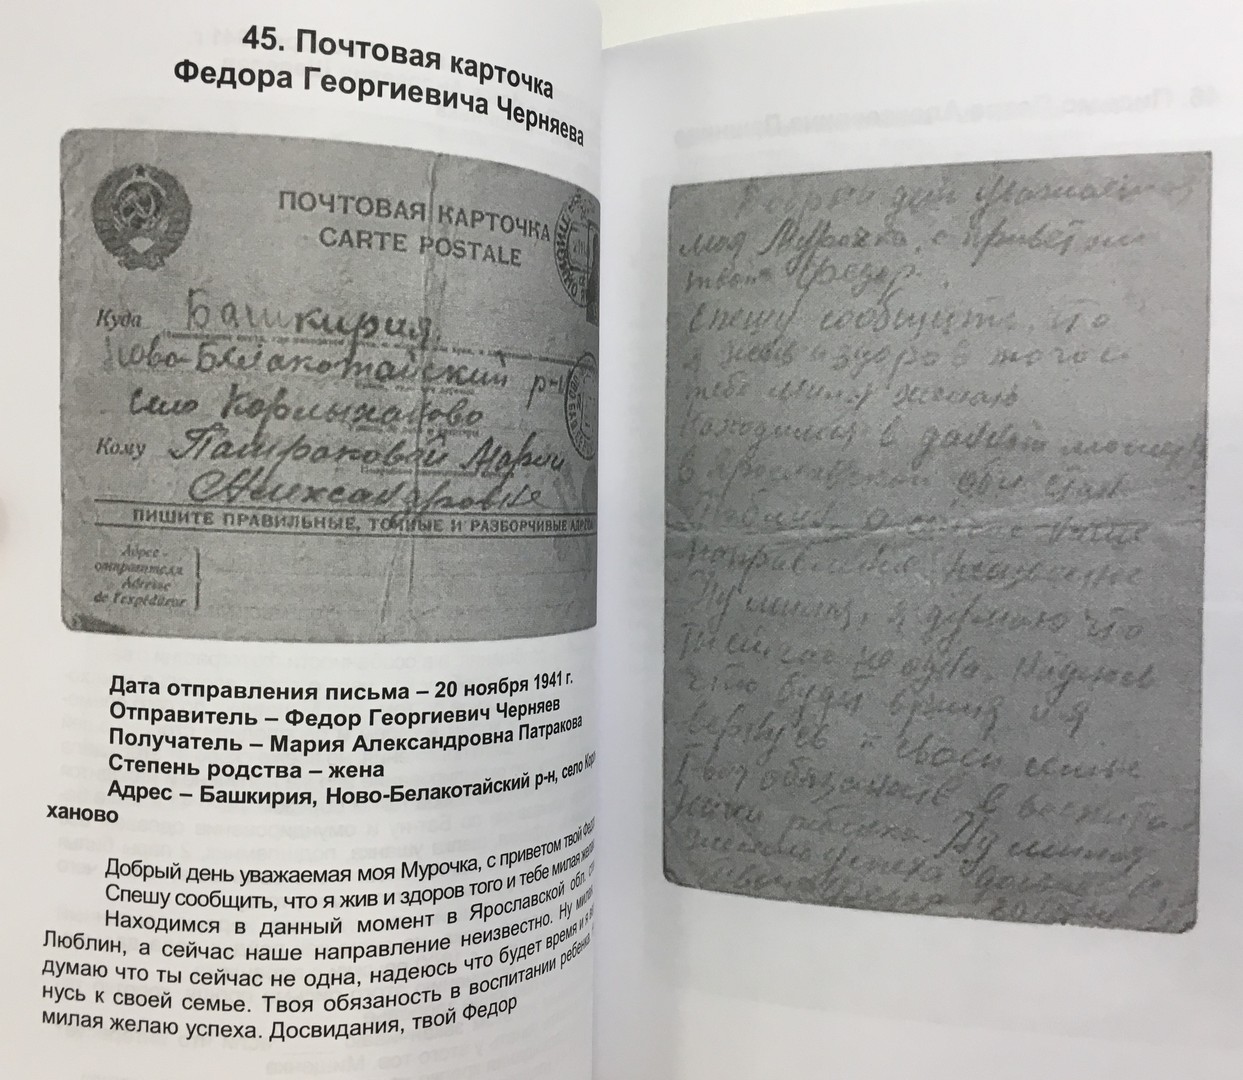 45. Почтовая карточка
Федора Георгиевича Черняева
ПОЧТОВАЯ КАРТОЧКА
CARTE POSTALE
Куда Башкирия,
Ново-Белокотайский р-н
село Корлыханово
Кому Патраковой Марии
Александровне
ПИШИТЕ ПРАВИЛЬНЫЕ, ТОЧНЫЕ И РАЗБОРЧИВЫЕ АДРЕСА
Адрес
отправителя
Adresse
de l'expéditeur
Дата отправления письма – 20 ноября 1941 г.
Отправитель – Федор Георгиевич Черняев
Получатель – Мария Александровна Патракова
Степень родства – жена
Адрес – Башкирия, Ново-Белакотайский р-н, село Кор
ханово
Добрый день уважаемая моя Мурочка, с приветом твой Федо
Спешу сообщить, что я жив и здоров того и тебе милая жела
Находимся в данный момент в Ярославской обл. ст
Люблин, а сейчас наше направление неизвестно. Ну милая
думаю что ты сейчас не одна, надеюсь что будет время и я ве
нусь к своей семье. Твоя обязаность в воспитании ребенка.
милая желаю успеха. Досвидания, твой Федор
Добрый день уважаемая
моя Мурочка, с приветом
твой Федор.
Спешу сообщить, что
я жив и здоров того и
тебе милая желаю
Находимся в данный момент
в Ярославской обл стан
Люблин а сейчас наше
направление неизвестно
Ну милая, я думаю что
ты сейчас не одна надеюсь
что будет время и я
вернусь к своей семье
Твоя обязаность в воспита
ребенка Ну милая
желаю успеха